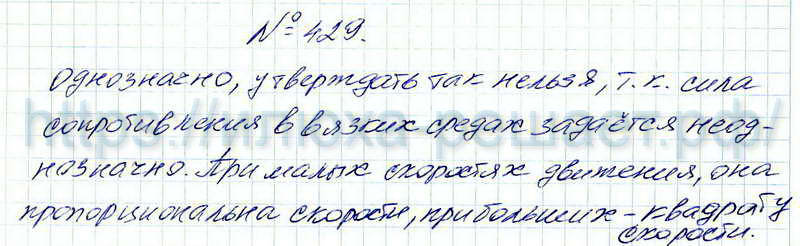 № 429.
однозначно, утверждать так нельзя, т. к. сила
сопротивления в вязких средах задаётся неод-
нозначно. При малых скоростях движения, она
пропорциональна скорости, при больших - квадрату
скорости.